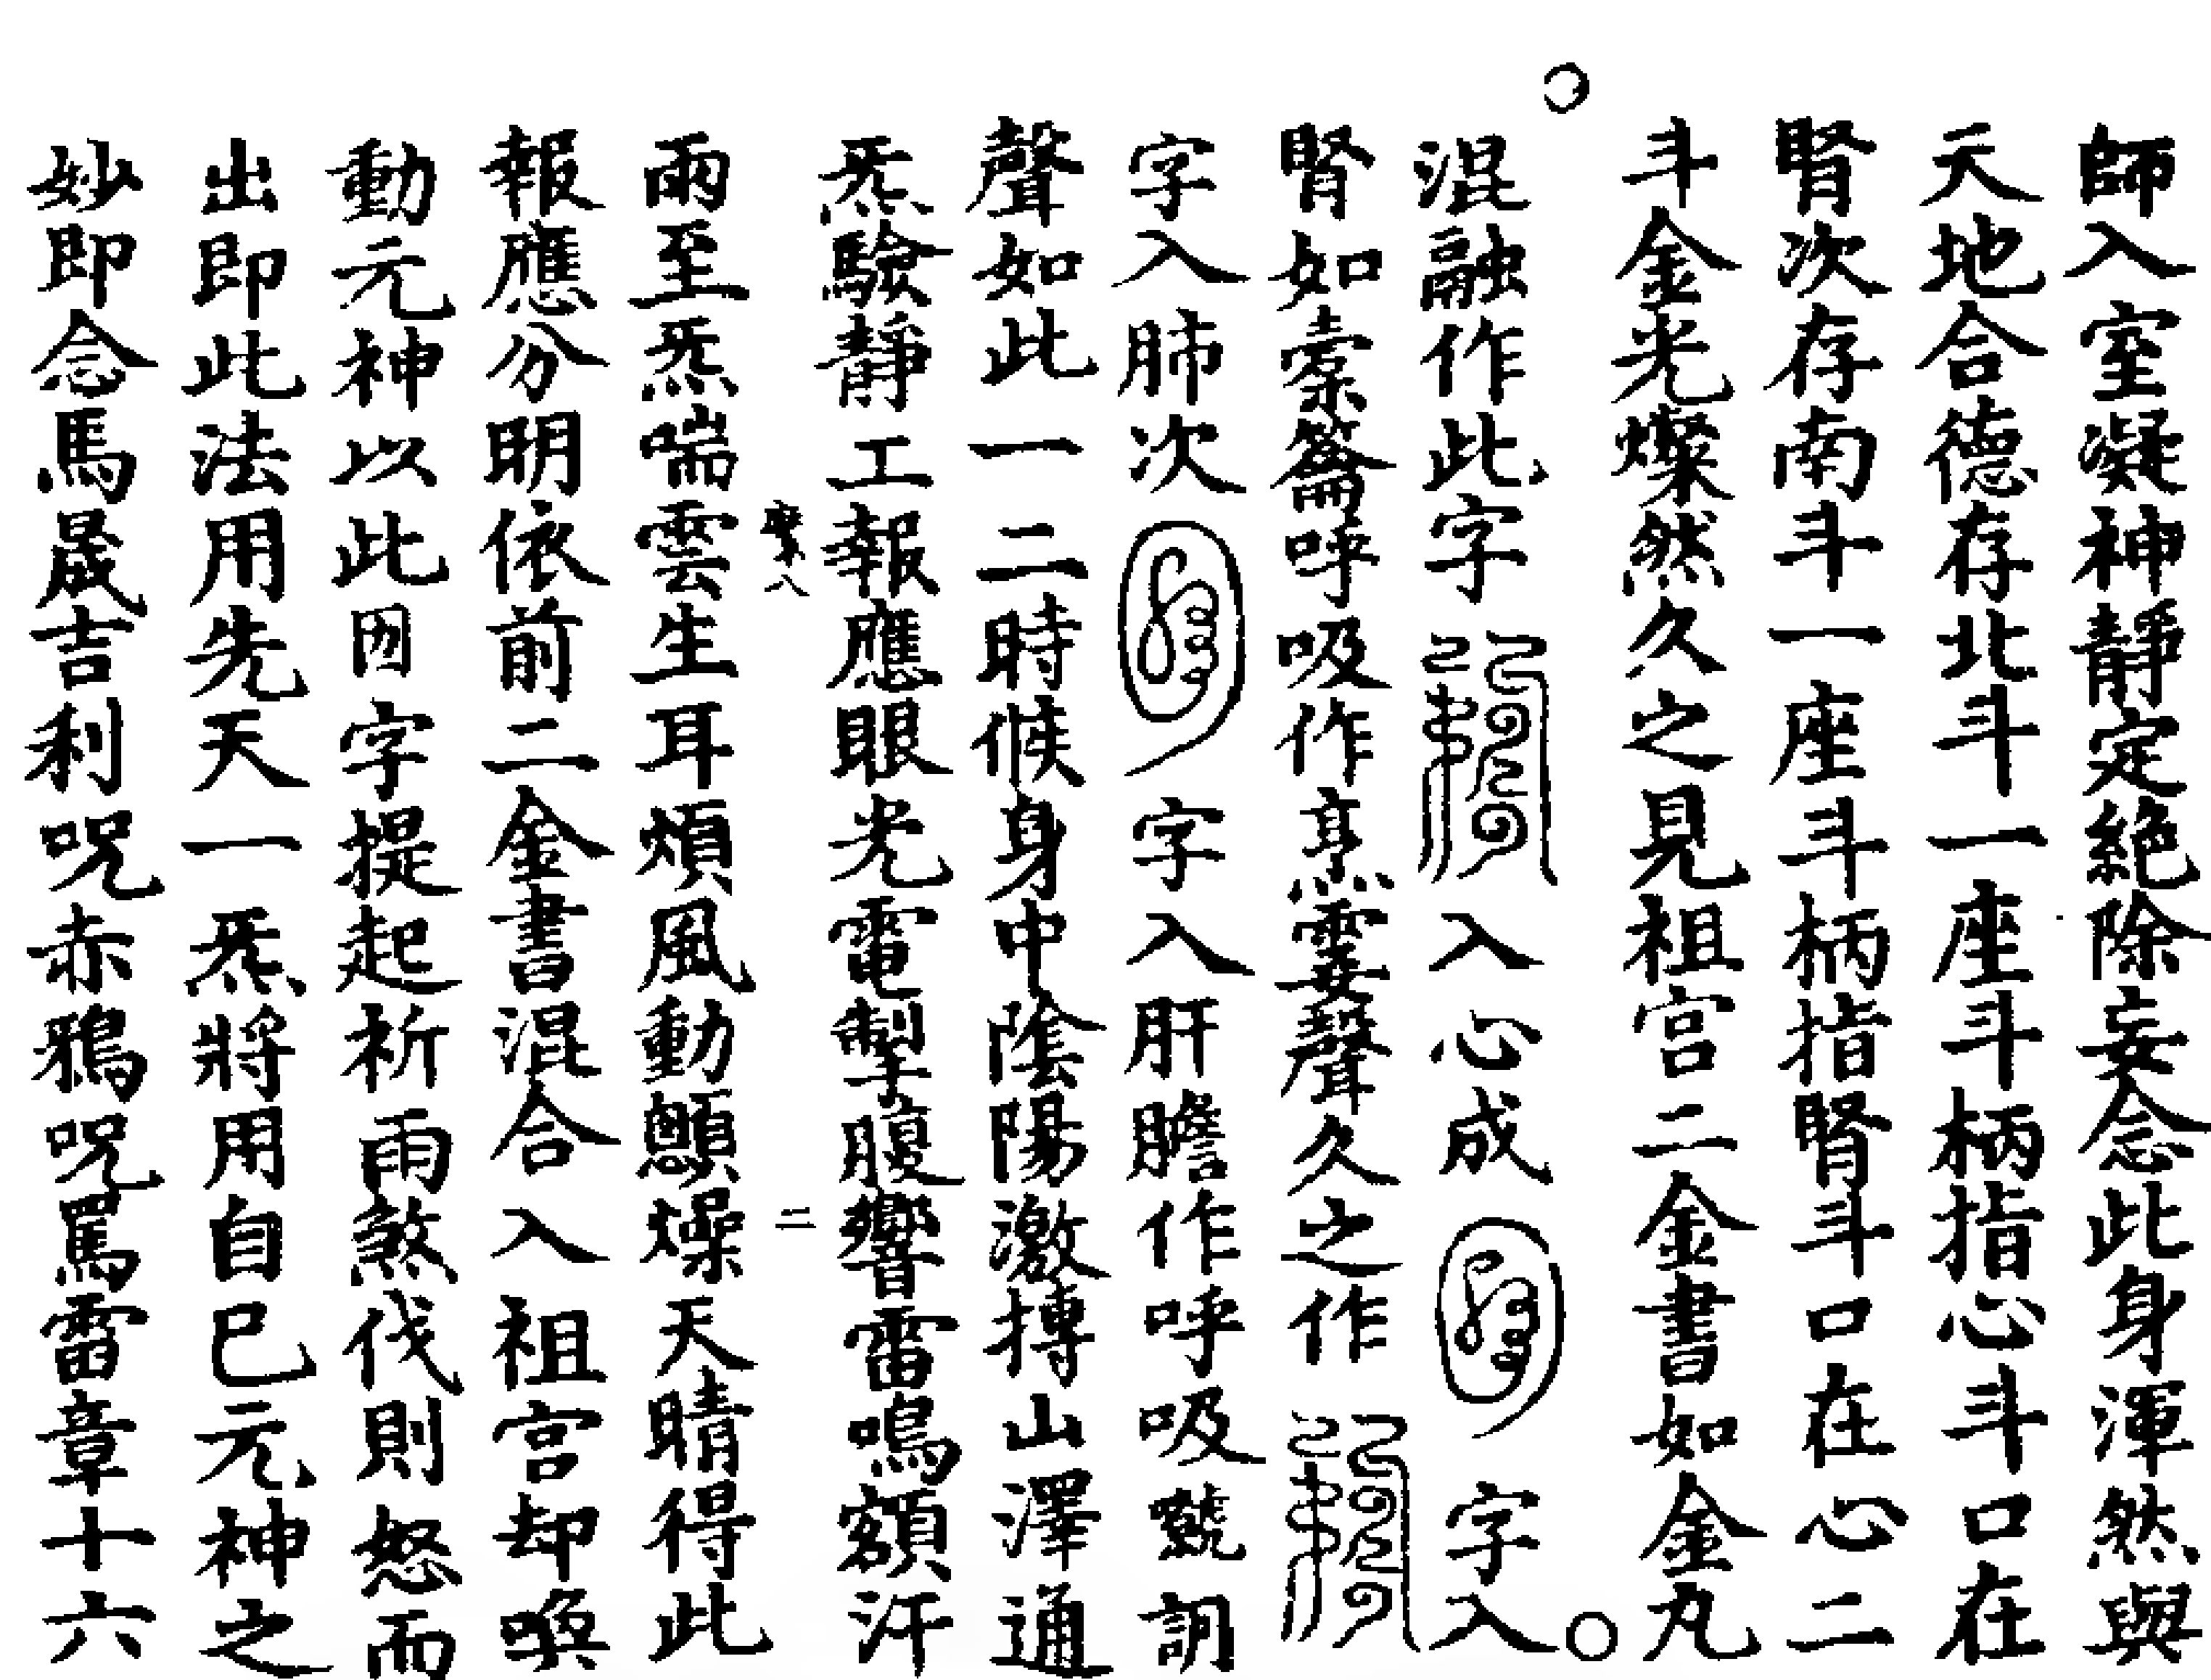 師入室凝神靜定絕除妄念此身渾然與
天地合德存北斗一座斗柄指心斗口在
腎次存南斗一座斗柄指腎斗口在心二
斗金光燦然久之見祖宮二金書如金丸
混融作此字入心成字入
腎如橐籥呼吸作烹霎聲久之作
字入肺次字入肝膽作呼吸虩訇
聲如此一二時候身中陰陽激摶山澤通
炁驗靜工報應眼光電掣腹響雷鳴額汗
雨至炁喘雲生耳煩風動顫燥天晴得此
報應分明依前二金書混合入祖宮却喚
動元神以此囦字提起祈雨煞伐則怒而
出即此法用先天一炁將用自已元神之
妙即念馬晟吉利呪赤鴉呪罵雷章十六
二